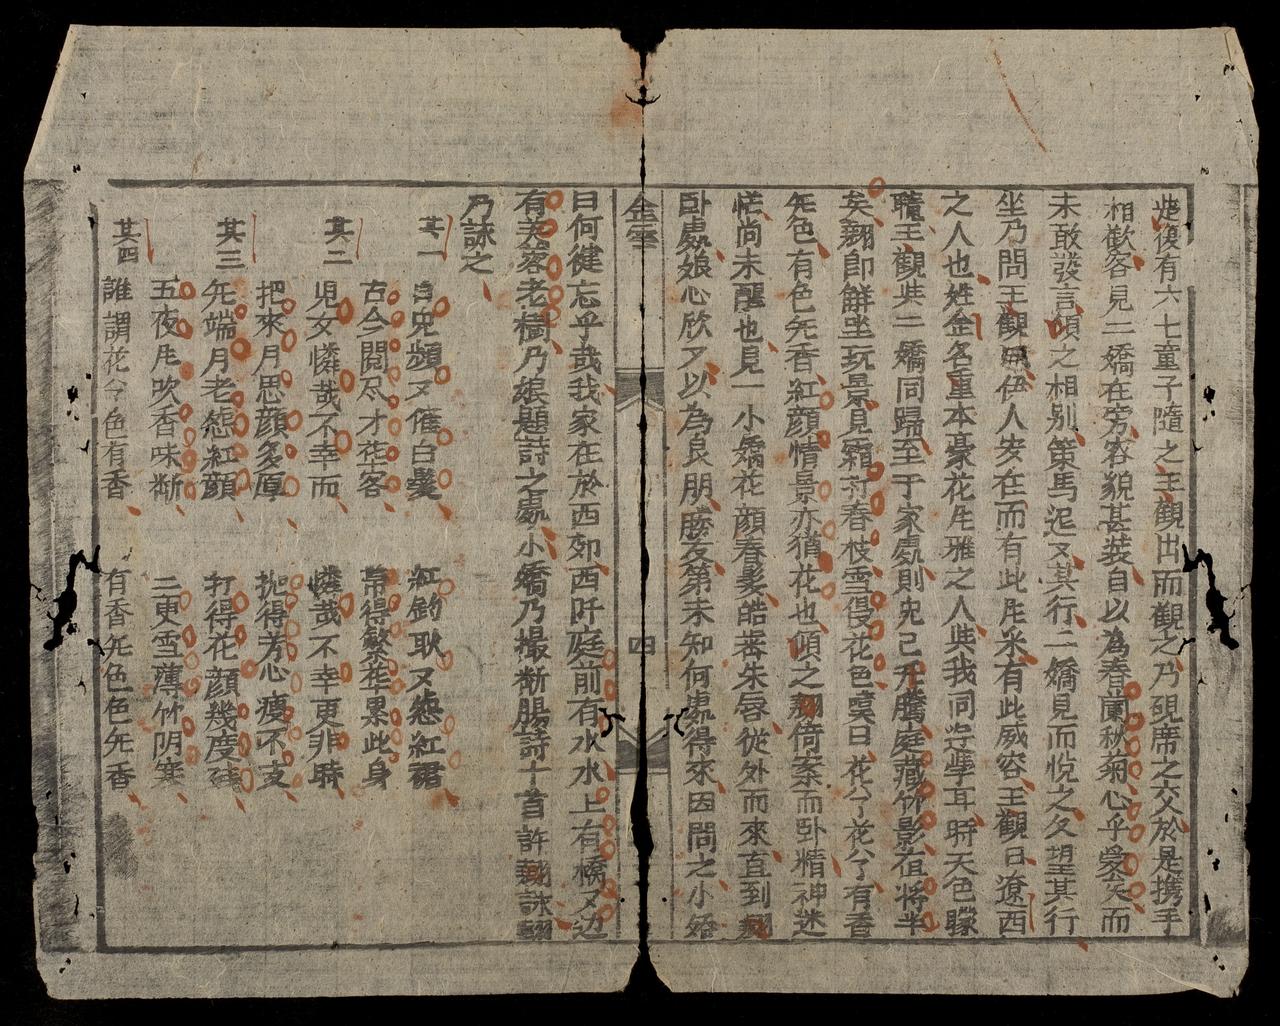 復有六七童子隨之王觀出而觀之乃硯席之交於是携手
相歡客見二嬌在旁容貌甚裝自以為春蘭秋菊心乎愛矣而
未敢發言傾之相别策馬泥又其行二嬌見而悅之久望其行
坐乃問王觀曰伊人安在而有此丰采有此威容王觀曰遼西
之人也姓金名重本豪花生雅之人与我同學耳時天色朦
朧王觀與二嬌同歸至于家處則兔已升騰庭藏竹影徂將半
矣翹即觧坐玩景見霜打春枝雪侵花色嘆曰花兮花兮有香
無色有色無香紅顔情景亦猶花也傾之翹倚案而卧精神迷
恍尚未醒也見一小嬌花顔春髮皓齒朱唇從外而來直到翹
卧處娘心欣又以為良朋勝友第未知何處得來因問之小嬌
金雲
四
曰何徤忘乎哉我家在於西郊西阡庭前有水水上有橋乂边
有芙蓉老樹乃娘題詩之處小嬌乃撮斷腸詩十首許翹詠翹
乃詠之
其一
自兒頻又催白髮 紅鈞耿又愁紅裙
古今閱尽才華客 常得繁華累此身
其二
児女憐哉不幸而 憐哉不幸更非時
把來月思顔多厚 抛得芳心瘦不支
其三
無端月老愁紅顔 打得花顔幾度殘
五夜風吹香味断 三更雪薄竹阴寒
其四
誰謂花今色有香 有香無色色無香